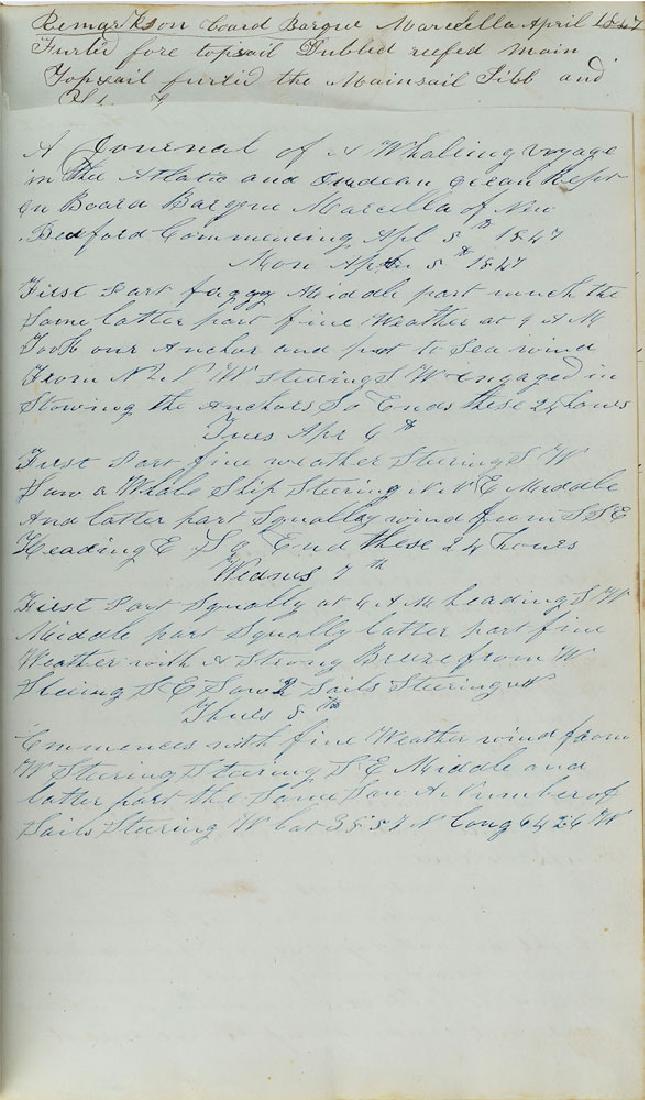 Remarks on board Barque Marcella April 1847
Furld fore topsail Dubled reefed Main
Topsail furld the Mainsail Jibb and
A Journal of A Whaling voyage
in the Atlatic and Indean Ocean Kept
on Board Barque Marcella of New
Bedford Commencing Apl 5th 1847
Mon Apr 5th 1847
First Part foggy Middle part much the
Same latter part fine Weather at 9 A M
Took our Anchor and put to Sea wind
From N W steering S W engaged in
Stowing the Anchors So Ends these 24 hours
Tues Apr 6th
First Part fine weather Steering S W
Saw a Whale Ship Steering N N E Middle
And latter part Squally wind from S S E
Heading E So End these 24 hours
Wedns 7th
First Part Squally at 4 A M heading S W
Middle part Squally latter part fine
Weather with A Strong Breeze from W
Steeing S E Saw 2 Sails Steering W
Thurs 8th
Commences with fine Weather wind from
W Steering Steering S E Middle and
latter part the Same Saw A Number of
Sails Steering W Lat 38 57 N Long 64 26 W